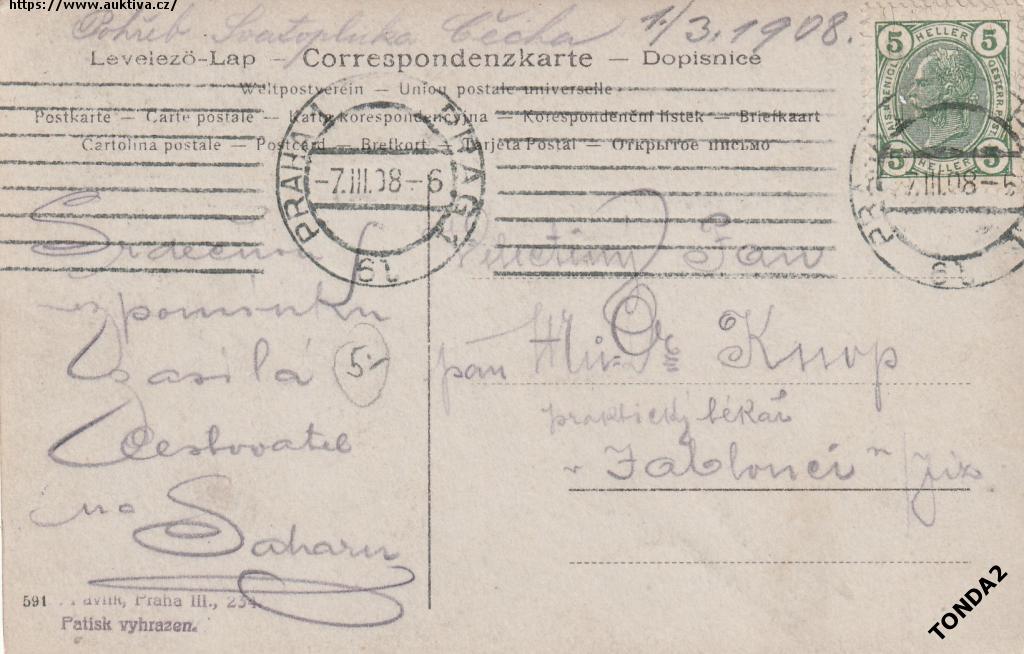 https://www.auktiva.cz/
Pohřeb Svatopluka Čecha 1/3. 1908.
Levelező-Lap – Correspondenzkarte – Dopisnice
Weltpostverein – Union postale universelle
Postkarte – Carte postale – Karta korespondencyjna – Korespondenční lístek – Briefkaart
Cartolina postale – Postcard – Brefkort – Tarjeta Postal – Открытое письмо
5 HELLER 5
5 HELLER 5
PRAHA 1 PRAG 1
-7.III.08-6
19
7.III.08-6
19
Srdečnou
vzpomínku
zasílá
Cestovatel
na
Saharu
5.-
Velectěný Pan
pán MUDr Knop
praktický lékař
v Jablonci n/Jiz
591
Praha III., 234.
Patisk vyhrazen.
TONDA2